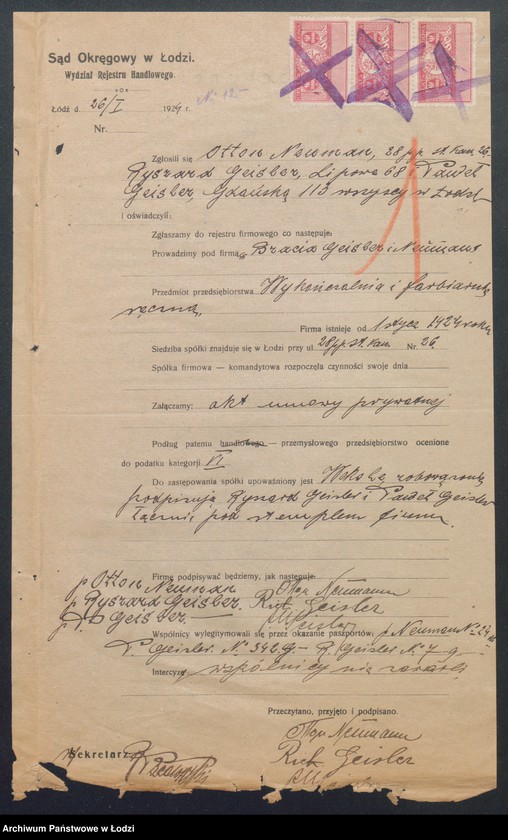 Sąd Okręgowy w Łodzi.
Wydział Rejestru Handlowego.
Łódź d. 26/I 1924 r.
Nr.
Zgłosili się Otton Neuman, 28 p.p. st. Kan. 26,
Ryszard Geisler, Lipowa 68 Paweł
Geisler, Gdańska 113 wszyscy w Łodzi
i oświadczyli:
Zgłaszamy do rejestru firmowego co następuje:
Prowadzimy pod firmą Bracia Geisler i Neuman
Przedmiot przedsiębiorstwa Wykończalnia i farbiarnia
ręczna,
Firma istnieje od 1 stycz. 1924 roku
Siedziba spółki znajduje się w Łodzi przy ul 28 p.p. st. Kan. Nr. 26
Spółka firmowa — komandytowa rozpoczęła czynności swoje dnia
Załączamy: akt umowy prywatnej
Podług patentu handlowego — przemysłowego przedsiębiorstwo ocenione
do podatku kategorji VI
Do zastępowania spółki upoważniony jest
podpisują Ryszard Geisler i Paweł Geisler
łącznie pod stemplem firmy.
Firmę podpisywać będziemy, jak następuje:
p Otton Neuman Otton Neumann
p Ryszard Geisler. Rich Geisler
p. P Geisler. — Geisler
Wspólnicy wylegitymowali się przez okazanie paszportów: p Neuman N°
P. Geisler. N° 342 g — R. Geisler N° 7 g
Intercyzy wspólnicy nie zawarli
Przeczytano, przyjęto i podpisano.
Neumann
Sekretarz Rich Geisler
Archiwum Państwowe w Łodzi